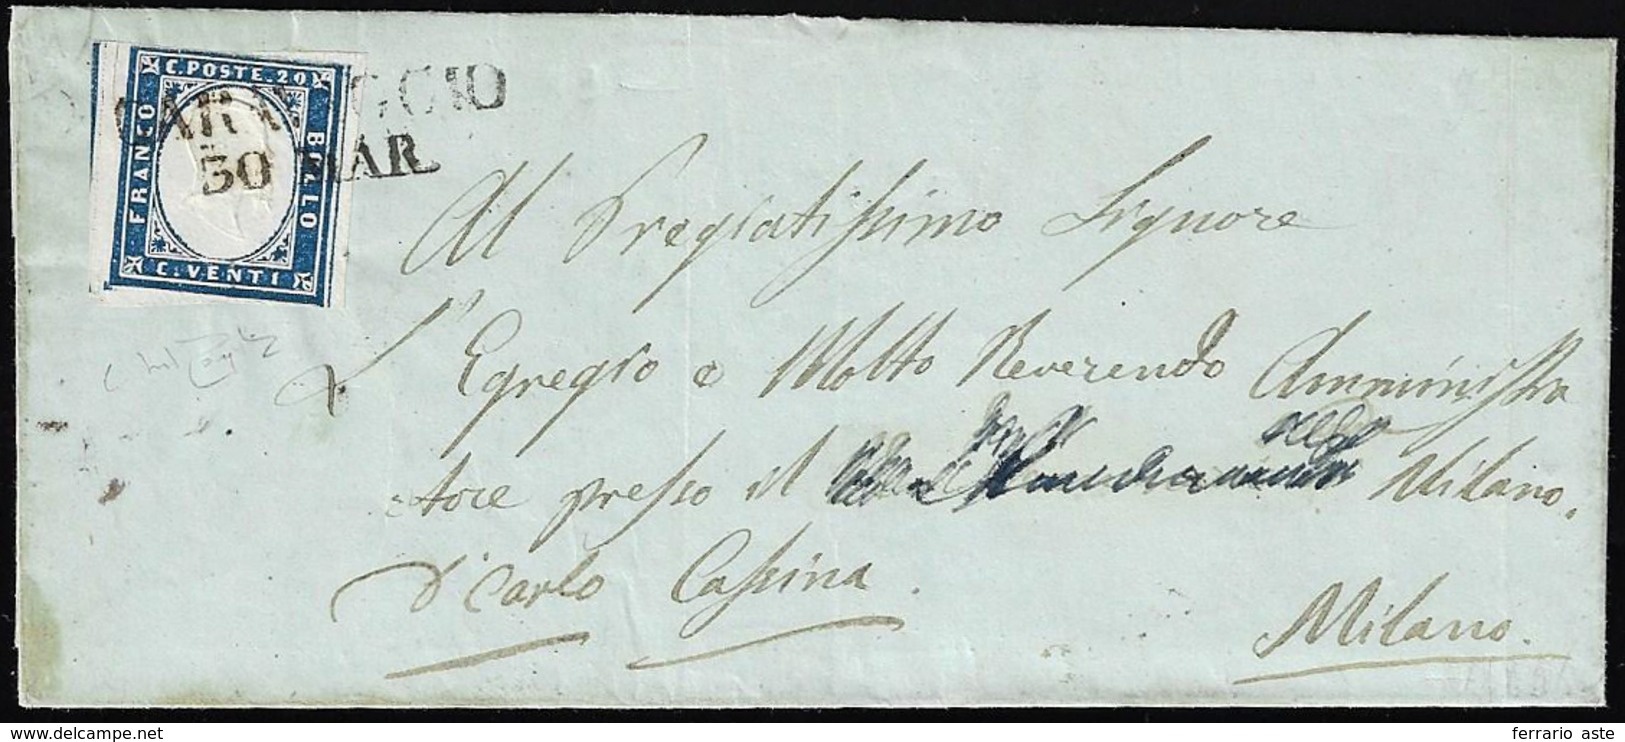 C. POSTE. 20
FRANCO
BOLLO
C. VENTI
CARAVAGGIO
30 MAR.
Al Pregiatissimo Signore
L'Egregio e Molto Reverendo Amministra
tore presso il Milano.
D. Carlo Cassina.
Milano.
www.delcampe.net
ferrario aste